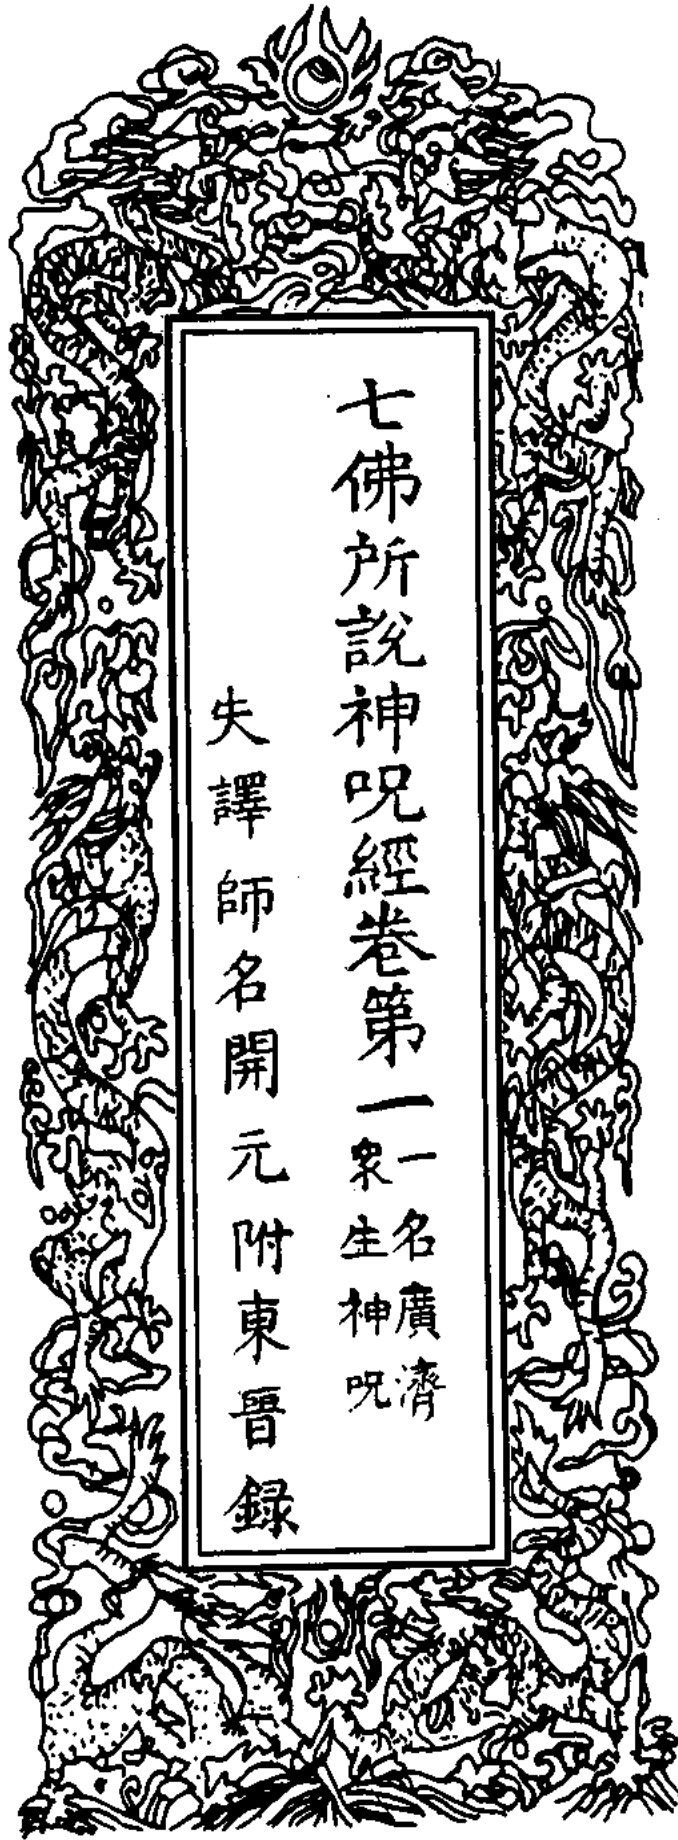 七佛所說神呪經卷第一
一名廣濟
衆生神呪
失譯師名開元附東晉録